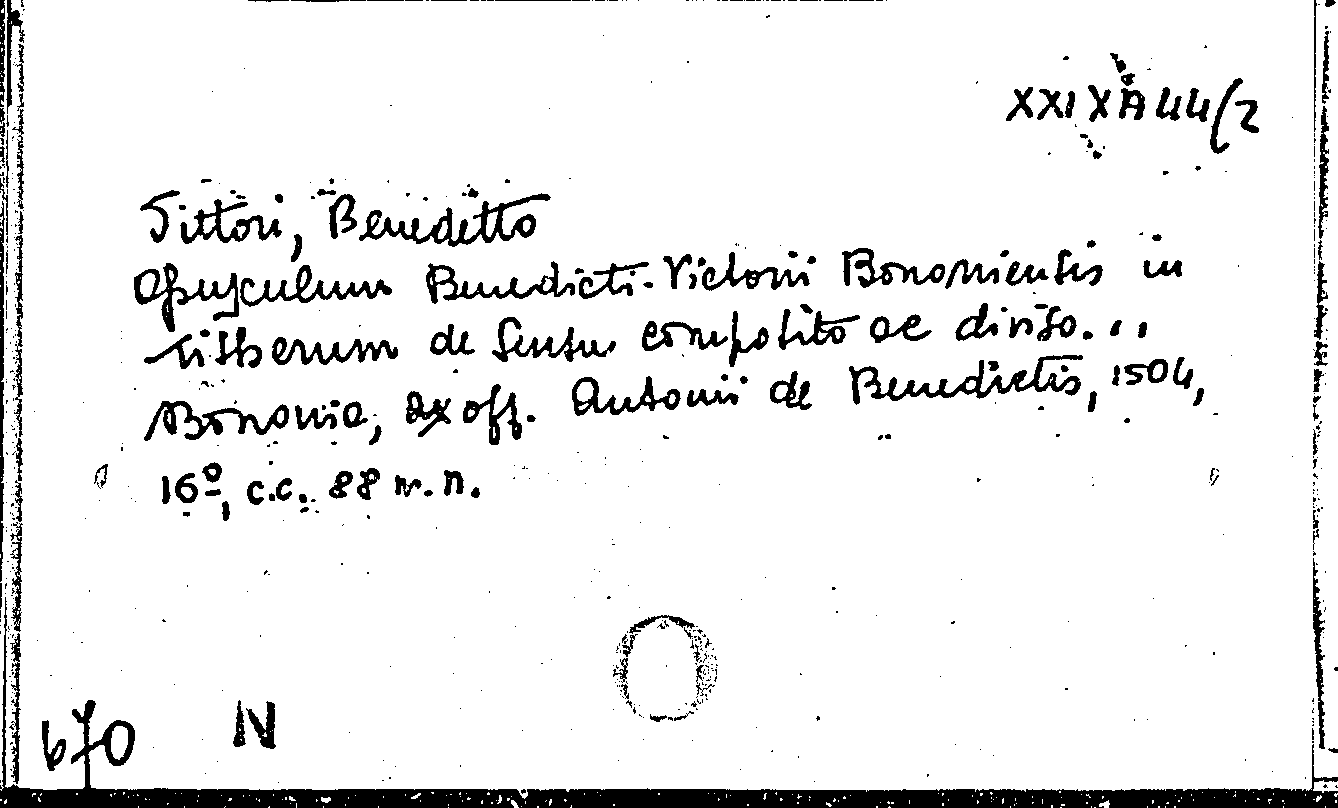 XXIX A 44/2
Vittori, Benedetto
Opusculum Benedicti Victorii Bononiensis in
Tisberum de sensu composito ac diviso...
Bononie, ex off. Antonii de Benedictis, 1504,
16º, c.c. 88 n.n.
670 N